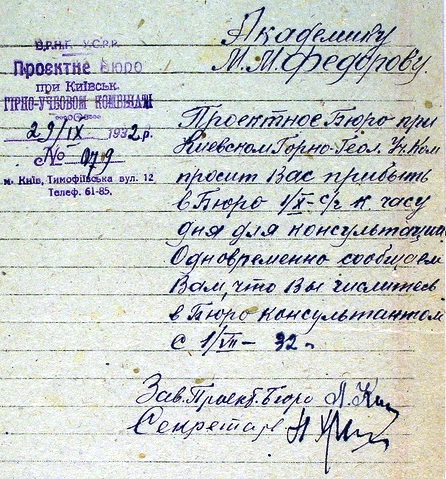 Академику
М.М.Федорову.
В.Р.Н.Г. У.С.Р.Р.
Проєктне Бюро
при Київськ.
ГІРНО-УЧБОВОМ КОМБІНАТІ
29/IX 1932 р.
№ 079
м. Київ, Тимофіївська вул. 12
Телеф. 61-85.
Проектное Бюро при
Киевском Горно-Геол. Уч. Ком
просит Вас прибыть
в Бюро 1/X-с/г к часу
дня для консультации
Одновременно сообщаем
Вам, что Вы числитесь
в Бюро консультантом
с 1/VII- 32 г
Зав. Проект. Бюро
Секретарь